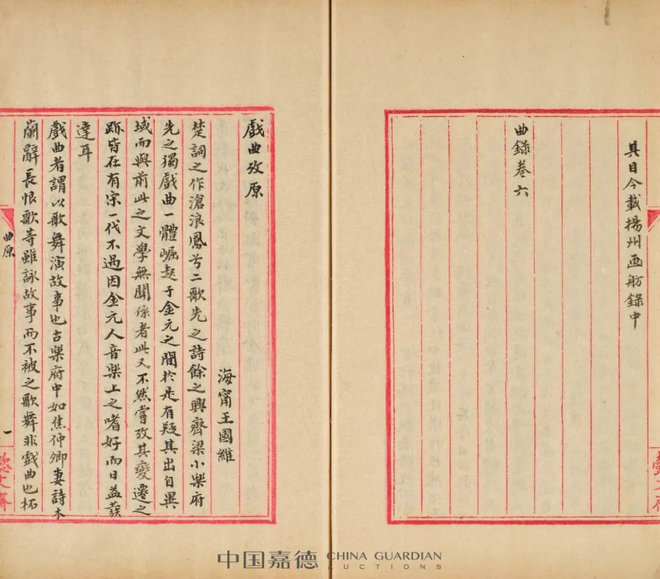 其目今載揚州画舫錄中
曲錄卷六
戲曲攷原
海甯王國維
楚詞之作滄浪鳳兮二歌先之詩餘之興齊梁小樂府
先之獨戲曲一體崛起于金元之間於是有疑其出自異
域而與前此之文學無関係者此又不然嘗攷其變遷之
跡皆在有宋一代不過因金元人音樂上之嗜好而日益發
達耳
戲曲者謂以歌舞演故事也古樂府中如焦仲卿妻詩木
蘭辭長恨歌等雖詠故事而不被之歌舞非戲曲也柘
曲原
一
中国嘉德 CHINA GUARDIAN
AUCTIONS